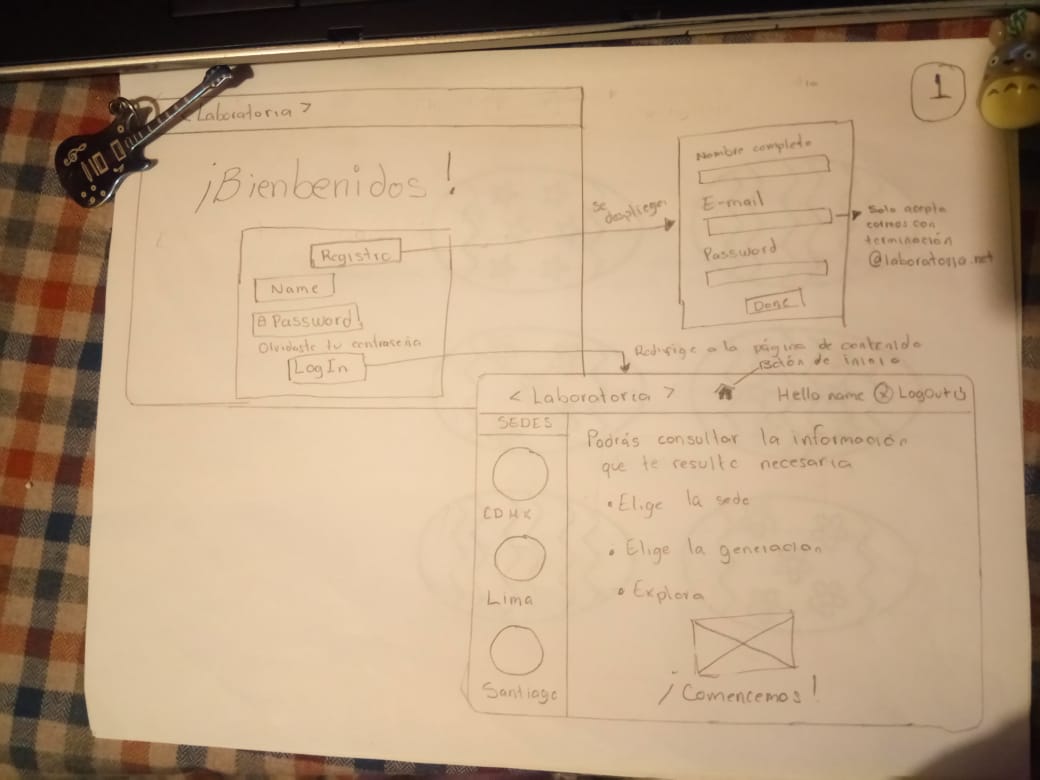 1
< Laboratoria >
¡Bienbenidos!
Registro
Name
Password
Olvidaste tu contraseña
LogIn
se
despliega
Nombre completo
E-mail
Password
Done
Solo acepta
correos con
terminación
@laboratoria.net
Redirige a la página de contenido
de inicio
< Laboratoria >
Hello name
Logout
SEDES
CDMX
Lima
Santiago
Podrás consultar la información
que te resulte necesaria
• Elige la sede
• Elige la generacion
• Explora
¡Comencemos!